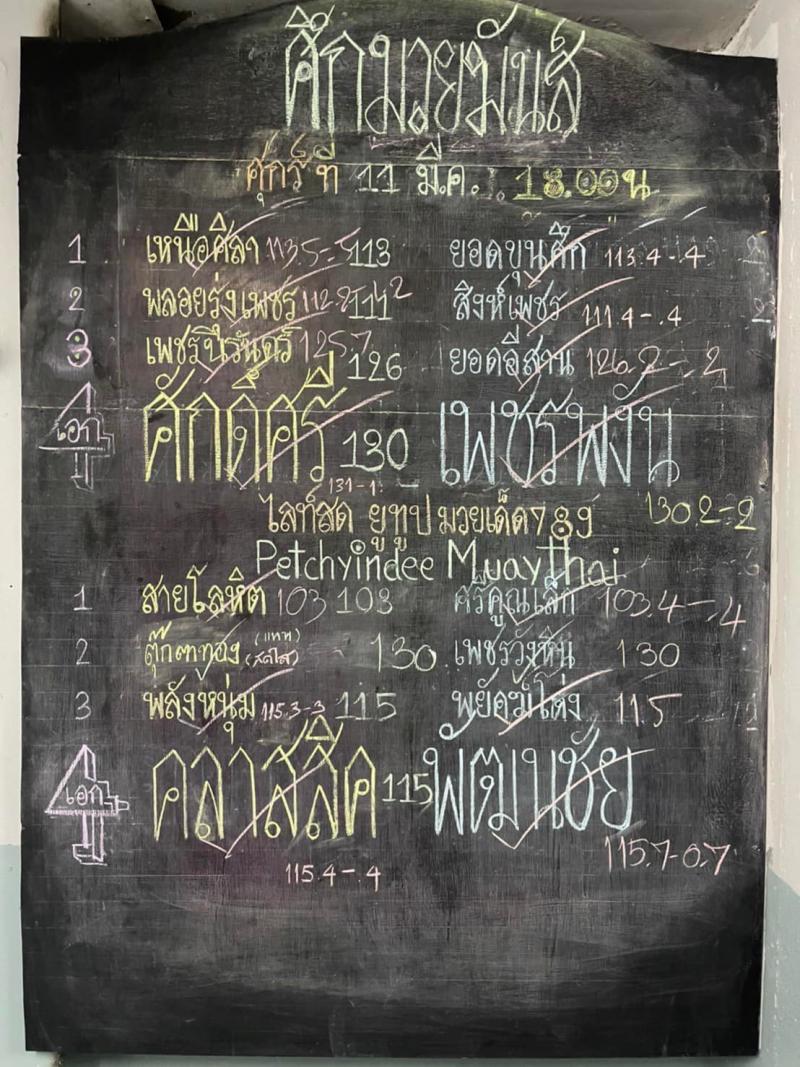 ศึกมวยมันส์
ศุกร์ที่ 11 มี.ค. 18.00น
1 เหนือศิลา 113.5-.5 113 ยอดขุนศึก 113.4-.4
2 พลอยรุ่งเพชร 112.2 111 สิงห์เพชร 111.4-.4
3 เพชรปีรันดร์ 125.7 126 ยอดอีสาน 126.2-.2
4 เอก ศักดิ์ศรี 130 เพชรพงัน
131-1
130.2-2
ไลท์สด ยูทูป มวยเด็ด789
Petchyindee MuayThai
1 สายโลหิต 103 103 ศรีคูณเล็ก 103.4-.4
2 ตุ๊กตาทอง (แทน สดใส) 130 เพชรวังหิน 130
3 พลังหนุ่ม 115.3-3 115 พยัคฆ์โด่ง 115
4 เอก คลาสสิค 115 พัฒนชัย
115.4-.4 115.7-0.7